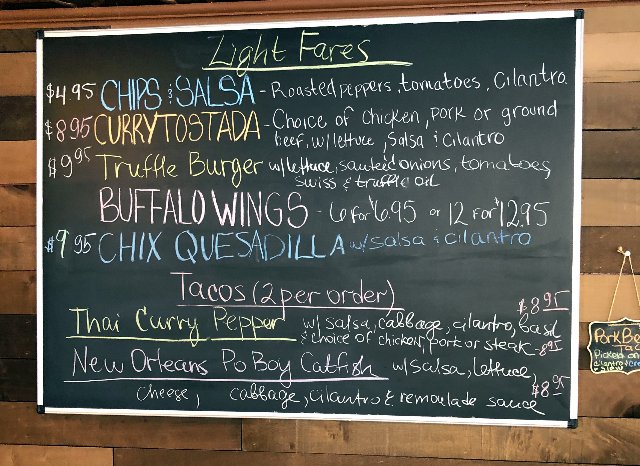 Light Fares
$4.95 CHIPS & SALSA - Roasted peppers, tomatoes, Cilantro
$8.95 CURRY TOSTADA - Choice of chicken, pork or ground
beef, w/lettuce, Salsa & Cilantro
$9.95 Truffle Burger w/lettuce, sauteéd onions, tomatoes,
swiss & truffle oil
BUFFALO WINGS - 6 for $6.95 or 12 for $12.95
$9.95 CHIX QUESADILLA w/ salsa & cilantro
Tacos (2 per order)
$8.95
Thai Curry Pepper w/ salsa, cabbage, cilantro, basil
& choice of chicken, pork or steak 8.95
New Orleans Po Boy Catfish w/ salsa, lettuce,
$8.95
cheese, cabbage, cilantro & remoulade sauce
Pork Be
Pickled on